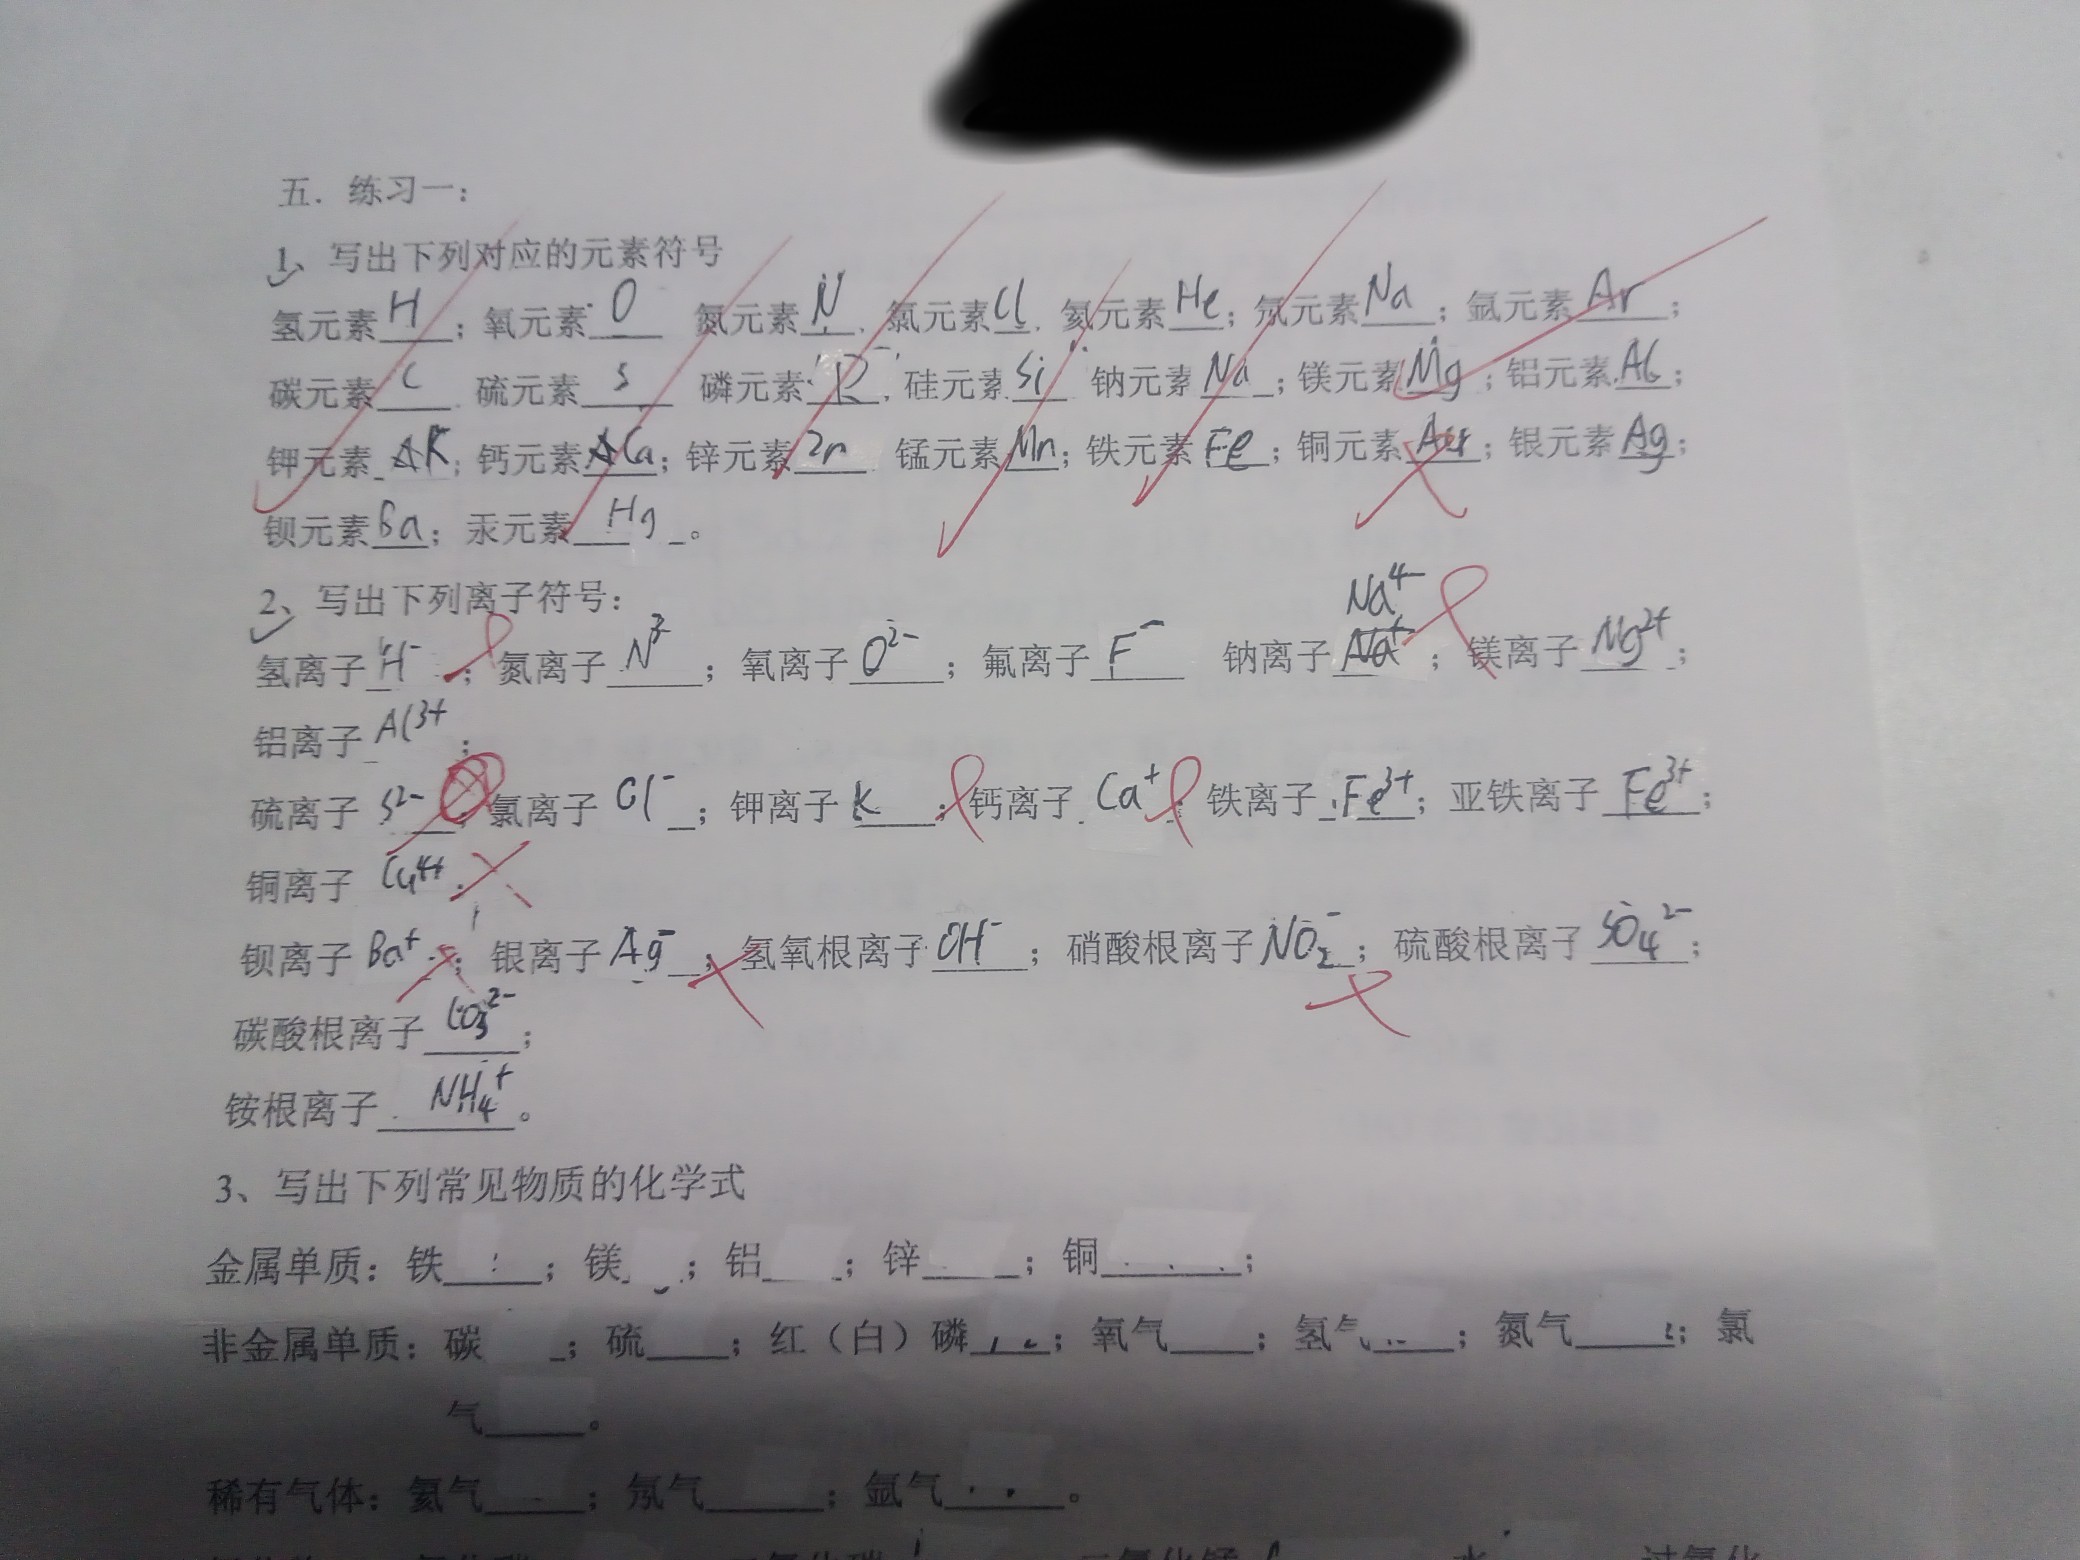 五. 练习一:
1、写出下列对应的元素符号
氢元素 H ; 氧元素 O 氮元素 N 氯元素 Cl 氦元素 He ; 氖元素 Na ; 氩元素 Ar ;
碳元素 C 硫元素 S 磷元素 硅元素 Si 钠元素 Na ; 镁元素 Mg ; 铝元素 Al ;
钾元素 K ; 钙元素 Ca ; 锌元素 Zn 锰元素 Mn ; 铁元素 Fe ; 铜元素 ; 银元素 Ag ;
钡元素 Ba ; 汞元素 Hg 。
2、写出下列离子符号:
Na⁺
氢离子 H⁻ ; 氮离子 N³⁻ ; 氧离子 O²⁻ ; 氟离子 F⁻ 钠离子 Na⁺ ; 镁离子 Mg²⁺ ;
铝离子 Al³⁺ ;
硫离子 S²⁻ ; 氯离子 Cl⁻ ; 钾离子 K ; 钙离子 Ca⁺ ; 铁离子 Fe³⁺ ; 亚铁离子 Fe³⁺ ;
铜离子 Cu⁴⁺ ;
钡离子 Ba⁺ ; 银离子 Ag⁻ ; 氢氧根离子 OH⁻ ; 硝酸根离子 NO₂⁻ ; 硫酸根离子 SO₄²⁻ ;
碳酸根离子 CO₃²⁻ ;
铵根离子 NH₄⁺ 。
3、写出下列常见物质的化学式
金属单质: 铁 ; 镁 ; 铝 ; 锌 ; 铜 ;
非金属单质: 碳 ; 硫 ; 红（白）磷 ; 氧气 ; 氢气 ; 氮气 ; 氯
气 。
稀有气体: 氦气 ; 氖气 ; 氩气 。